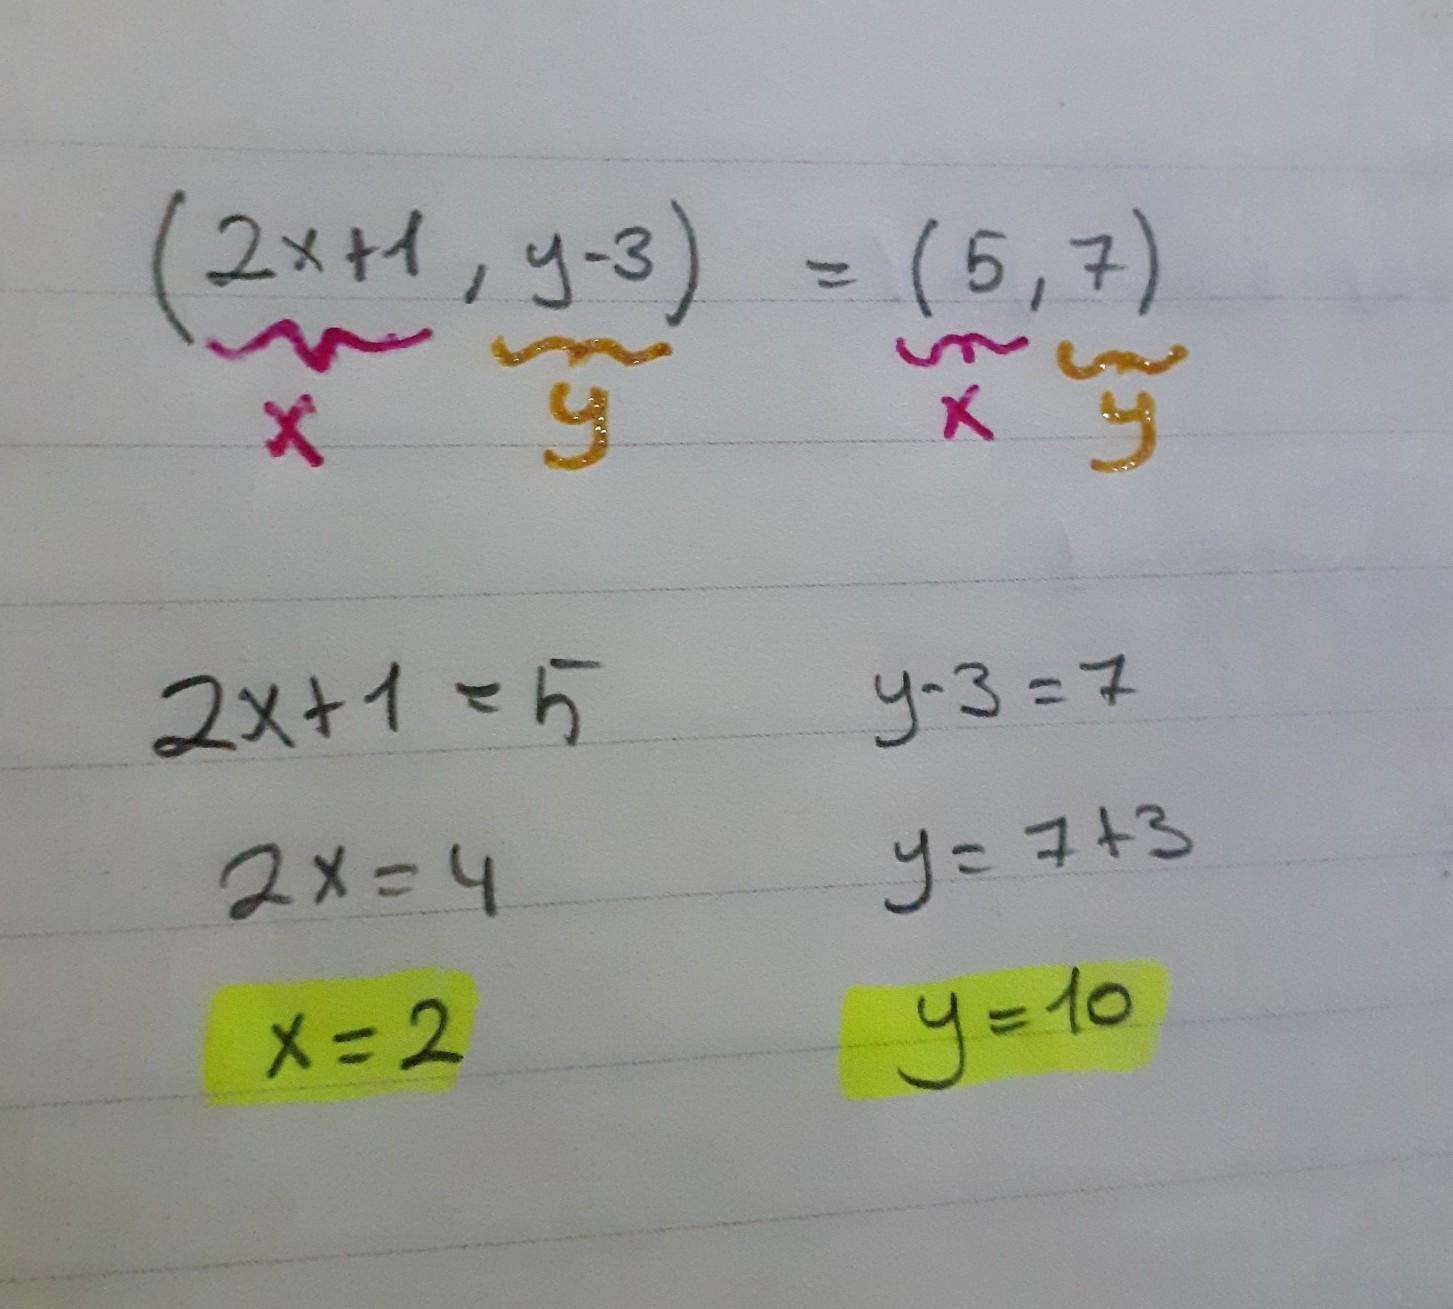 (2x+1, y-3) = (5,7)
x y x y
2x+1=5 y-3=7
2x=4 y=7+3
x=2 y=10